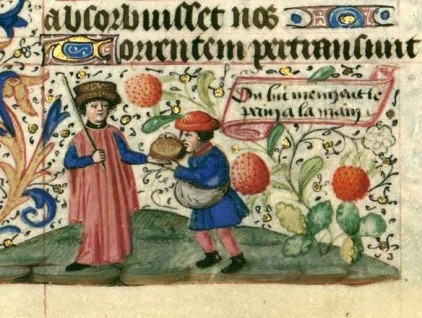 absorbuisset nos
Torrentem pertransiuit
On lui menjeut le
pain a la main